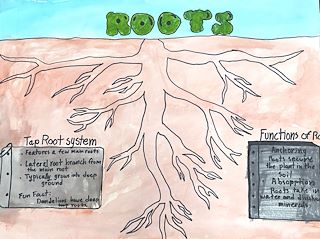 ROOTS
Tap Root system
• Features a few main roots
• Lateral root branch from
the main root
• Typically grows into deep
ground
Fun Fact:
Dandelions have deep
tap roots
Functions of Ro
Anchoring
Roots secure
the plant in the
soil
Absorption
Roots take in
water and
minerals